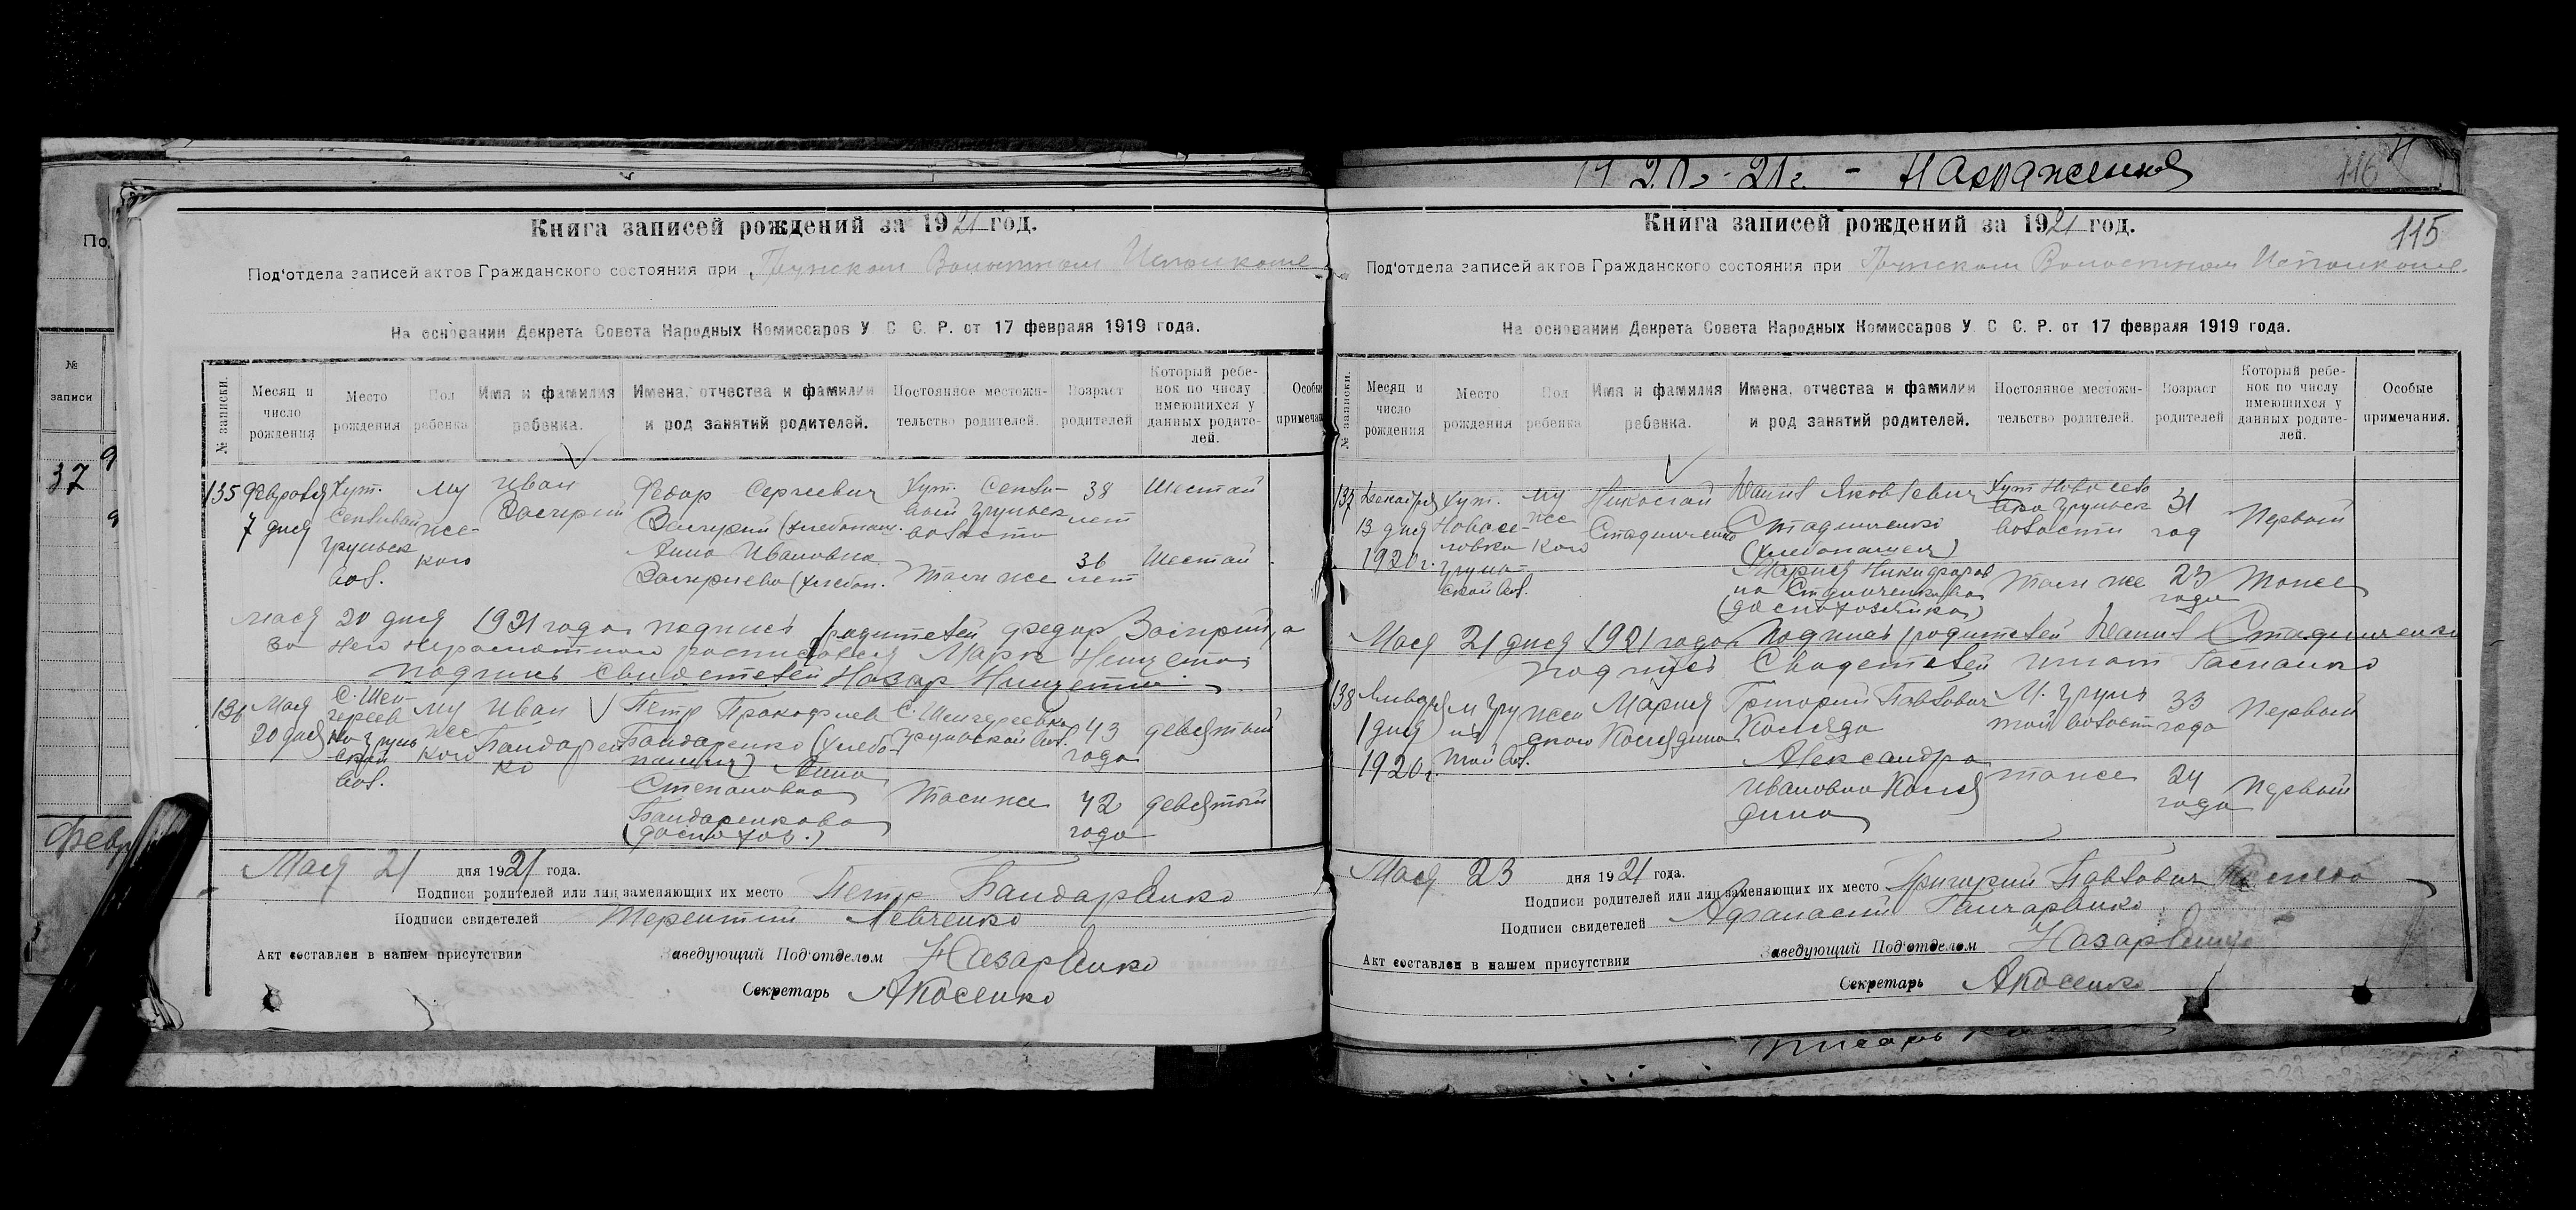 1920 г. - 21 г. - Нарождення
116
По
№
записи
37
Февр
Книга записей рождений за 1921 год.
Под'отдела записей актов Гражданского состояния при Грунском Волостном Исполкоме
На основании Декрета Совета Народных Комиссаров У. С. С. Р. от 17 февраля 1919 года.
№ записки.
Месяц и число рождения
Место рождения
Пол ребенка
Имя и фамилия ребенка.
Имена, отчества и фамилии и род занятий родителей.
Постоянное местожительство родителей.
Возраст родителей
Который ребенок по числу имеющихся у данных родителей.
Особые примечан
135 Февраля Хут. му Иван Федор Сергеевич Хут. 38 Шестой
7 дня Груньск же- Заичкин (хлебопаш. Груньск лет
вол. кого Анна Ивановна волости 36 Шестой
(хлебоп. Там же лет
Мая 20 дня 1921 года подпись родителей Федор а
за него неграмотного росписался Марк
подпись свидетелей Назар
136 Мая С. му Иван Петр Прокофиев С. 43 девятый
20 дня Грунь же Бондарен Бондаренко (хлебо Груньской вол. года
ской кого ко пашец) Анна
вол. Степановна Там же 42 девятый
Бондаренкова года
(домохоз.)
Мая 21 дня 1921 года.
Подписи родителей или лиц заменяющих их место Петр Бондаренко
Подписи свидетелей Терентий Левченко
Акт составлен в нашем присутствии Заведующий Под'отделом Назаренко
Секретарь Якосенко
115
Книга записей рождений за 1921 год.
Под'отдела записей актов Гражданского состояния при Грунском Волостном Исполкоме
На основании Декрета Совета Народных Комиссаров У. С. С. Р. от 17 февраля 1919 года.
№ записки.
Месяц и число рождения
Место рождения
Пол ребенка
Имя и фамилия ребенка.
Имена, отчества и фамилии и род занятий родителей.
Постоянное местожительство родителей.
Возраст родителей
Который ребенок по числу имеющихся у данных родителей.
Особые примечания.
137 Декабря Хут. му Николай Данил Яковлевич Хут Новосело 31 Первый
13 дня Новосе- же Стадниченко Стадниченко вка Груньск год
1920 г. ловка кого (хлебопашец) волости
Грунь- Мария Никифоров Там же 23 Тоже
ской вол. на Стадниченкова года
Мая 21 дня 1921 года Подпись родителей Данил Стадниченко
подпись Свидетелей Игнат
138 Января м Гру жен Мария Григорий Павлович М. Грунь 33 Первый
1 дня нь ского Колядина Коляда той волост года
1920 г. той вол. Александра
Ивановна Коля тоже 24 Первый
дина года
Мая 23 дня 1921 года.
Подписи родителей или лиц заменяющих их место Григорий Павлович Коляда
Подписи свидетелей Афанасий Гончаренко
Акт составлен в нашем присутствии Заведующий Под'отделом Назаренко
Секретарь Якосенко